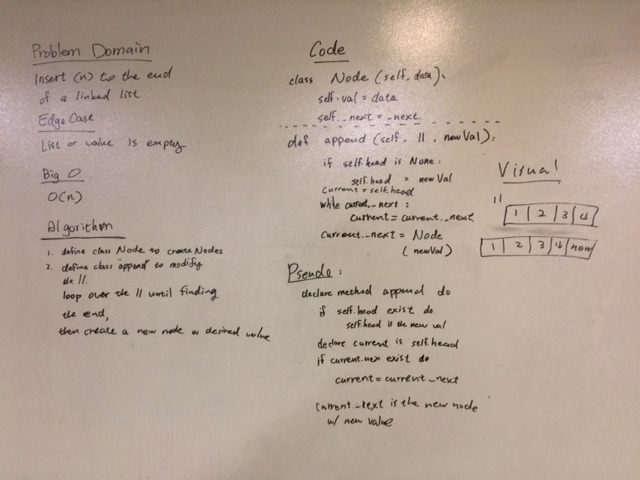 Problem Domain
Insert (n) to the end
of a linked list
Edge Case
List or value is empty
Big O
O(n)
Algorithm
1. define class Node to create Nodes
2. define class "append" to modify
the ll.
loop over the ll until finding
the end,
then create a new node w desired value
Code
class Node (self, data):
self.val = data
self._next = _next
def append (self, ll, newVal):
if self.head is None:
self.head = newVal
current = self.head
while current._next:
current = current._next
current._next = Node
(newVal)
Pseudo:
declare method append do
if self.head exist do
self.head is the new val
declare current is self.head
if current.nex exist do
current = current._next
current._next is the new node
w/ new value
Visual
ll
1 2 3 4
1 2 3 4 new